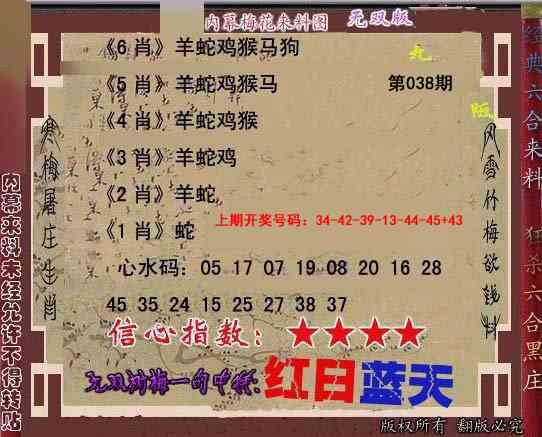 内幕梅花来料图 无双版
《6肖》羊蛇鸡猴马狗
《5肖》羊蛇鸡猴马 第038期
《4肖》羊蛇鸡猴
《3肖》羊蛇鸡
《2肖》羊蛇
《1肖》蛇
上期开奖号码：34-42-39-13-44-45+43
心水码：05 17 07 19 08 20 16 28
45 35 24 15 25 27 38 37
信心指数：★★★★
红日蓝天
寒梅屠庄生肖
风雪竹梅欲钱料
内幕来料未经允许不得转贴
经典六合来料
狂杀六合黑庄
版权所有 翻版必究